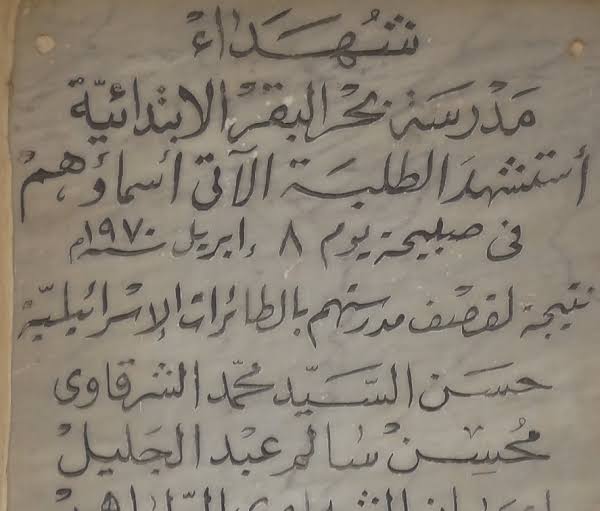 شُهَدَاءْ
مَدْرسَة بحْر البقرْ الابتدائيّة
أستشهدَ الطلبَة الآتى أسماؤهمْ
فى صبيحة يوم ٨ إبريل سنة ١٩٧٠م
نتيجة لقصْف مدرستهم بالطائرات الإسْرائيليّة
حسَن السَّيّد محمّد الشرقاوى
مُحسِنْ سَالم عبْد الجَليلْ